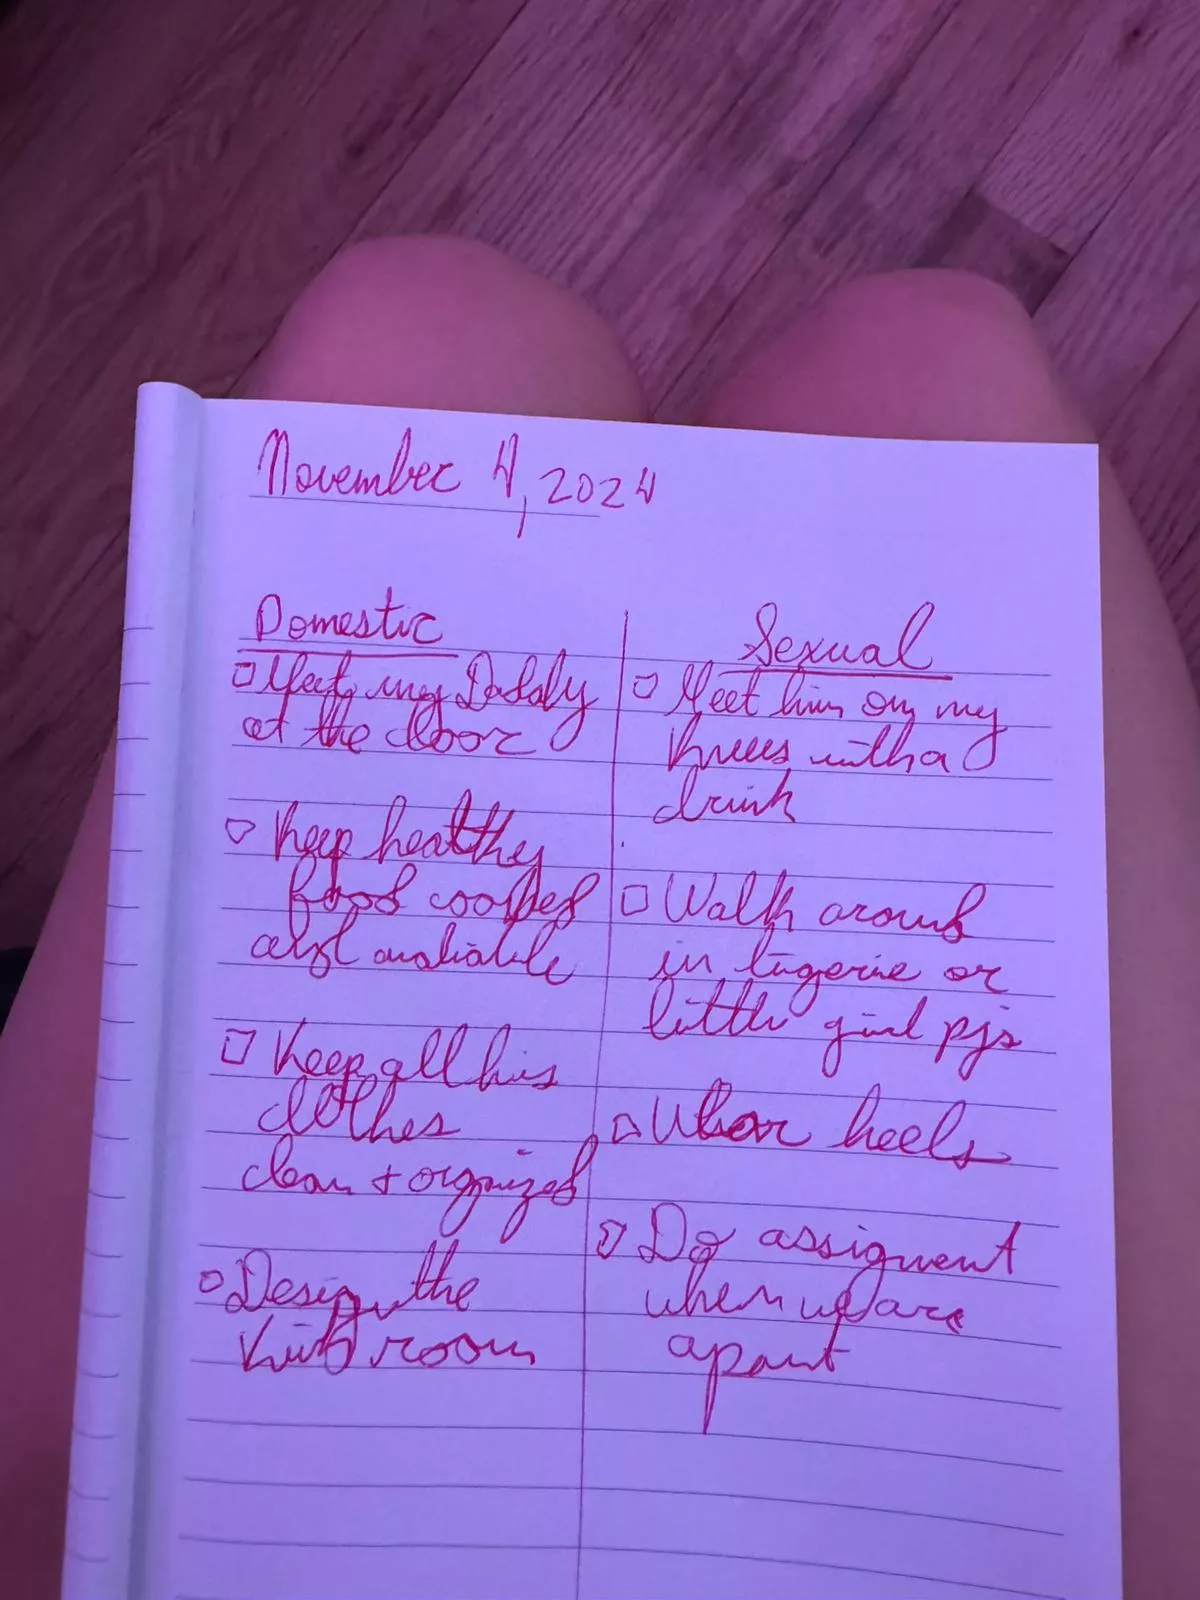 November 4, 2024
Domestic
□ Meet my Daddy
at the door
□ Keep healthy
food cooked
and available
□ Keep all his
clothes
clean + organized
□ Design the
room
Sexual
□ Meet him on my
knees with a
drink
□ Walk around
in lingerie or
little girl pjs
□ Wear heels
□ Do assignment
when we are
apart